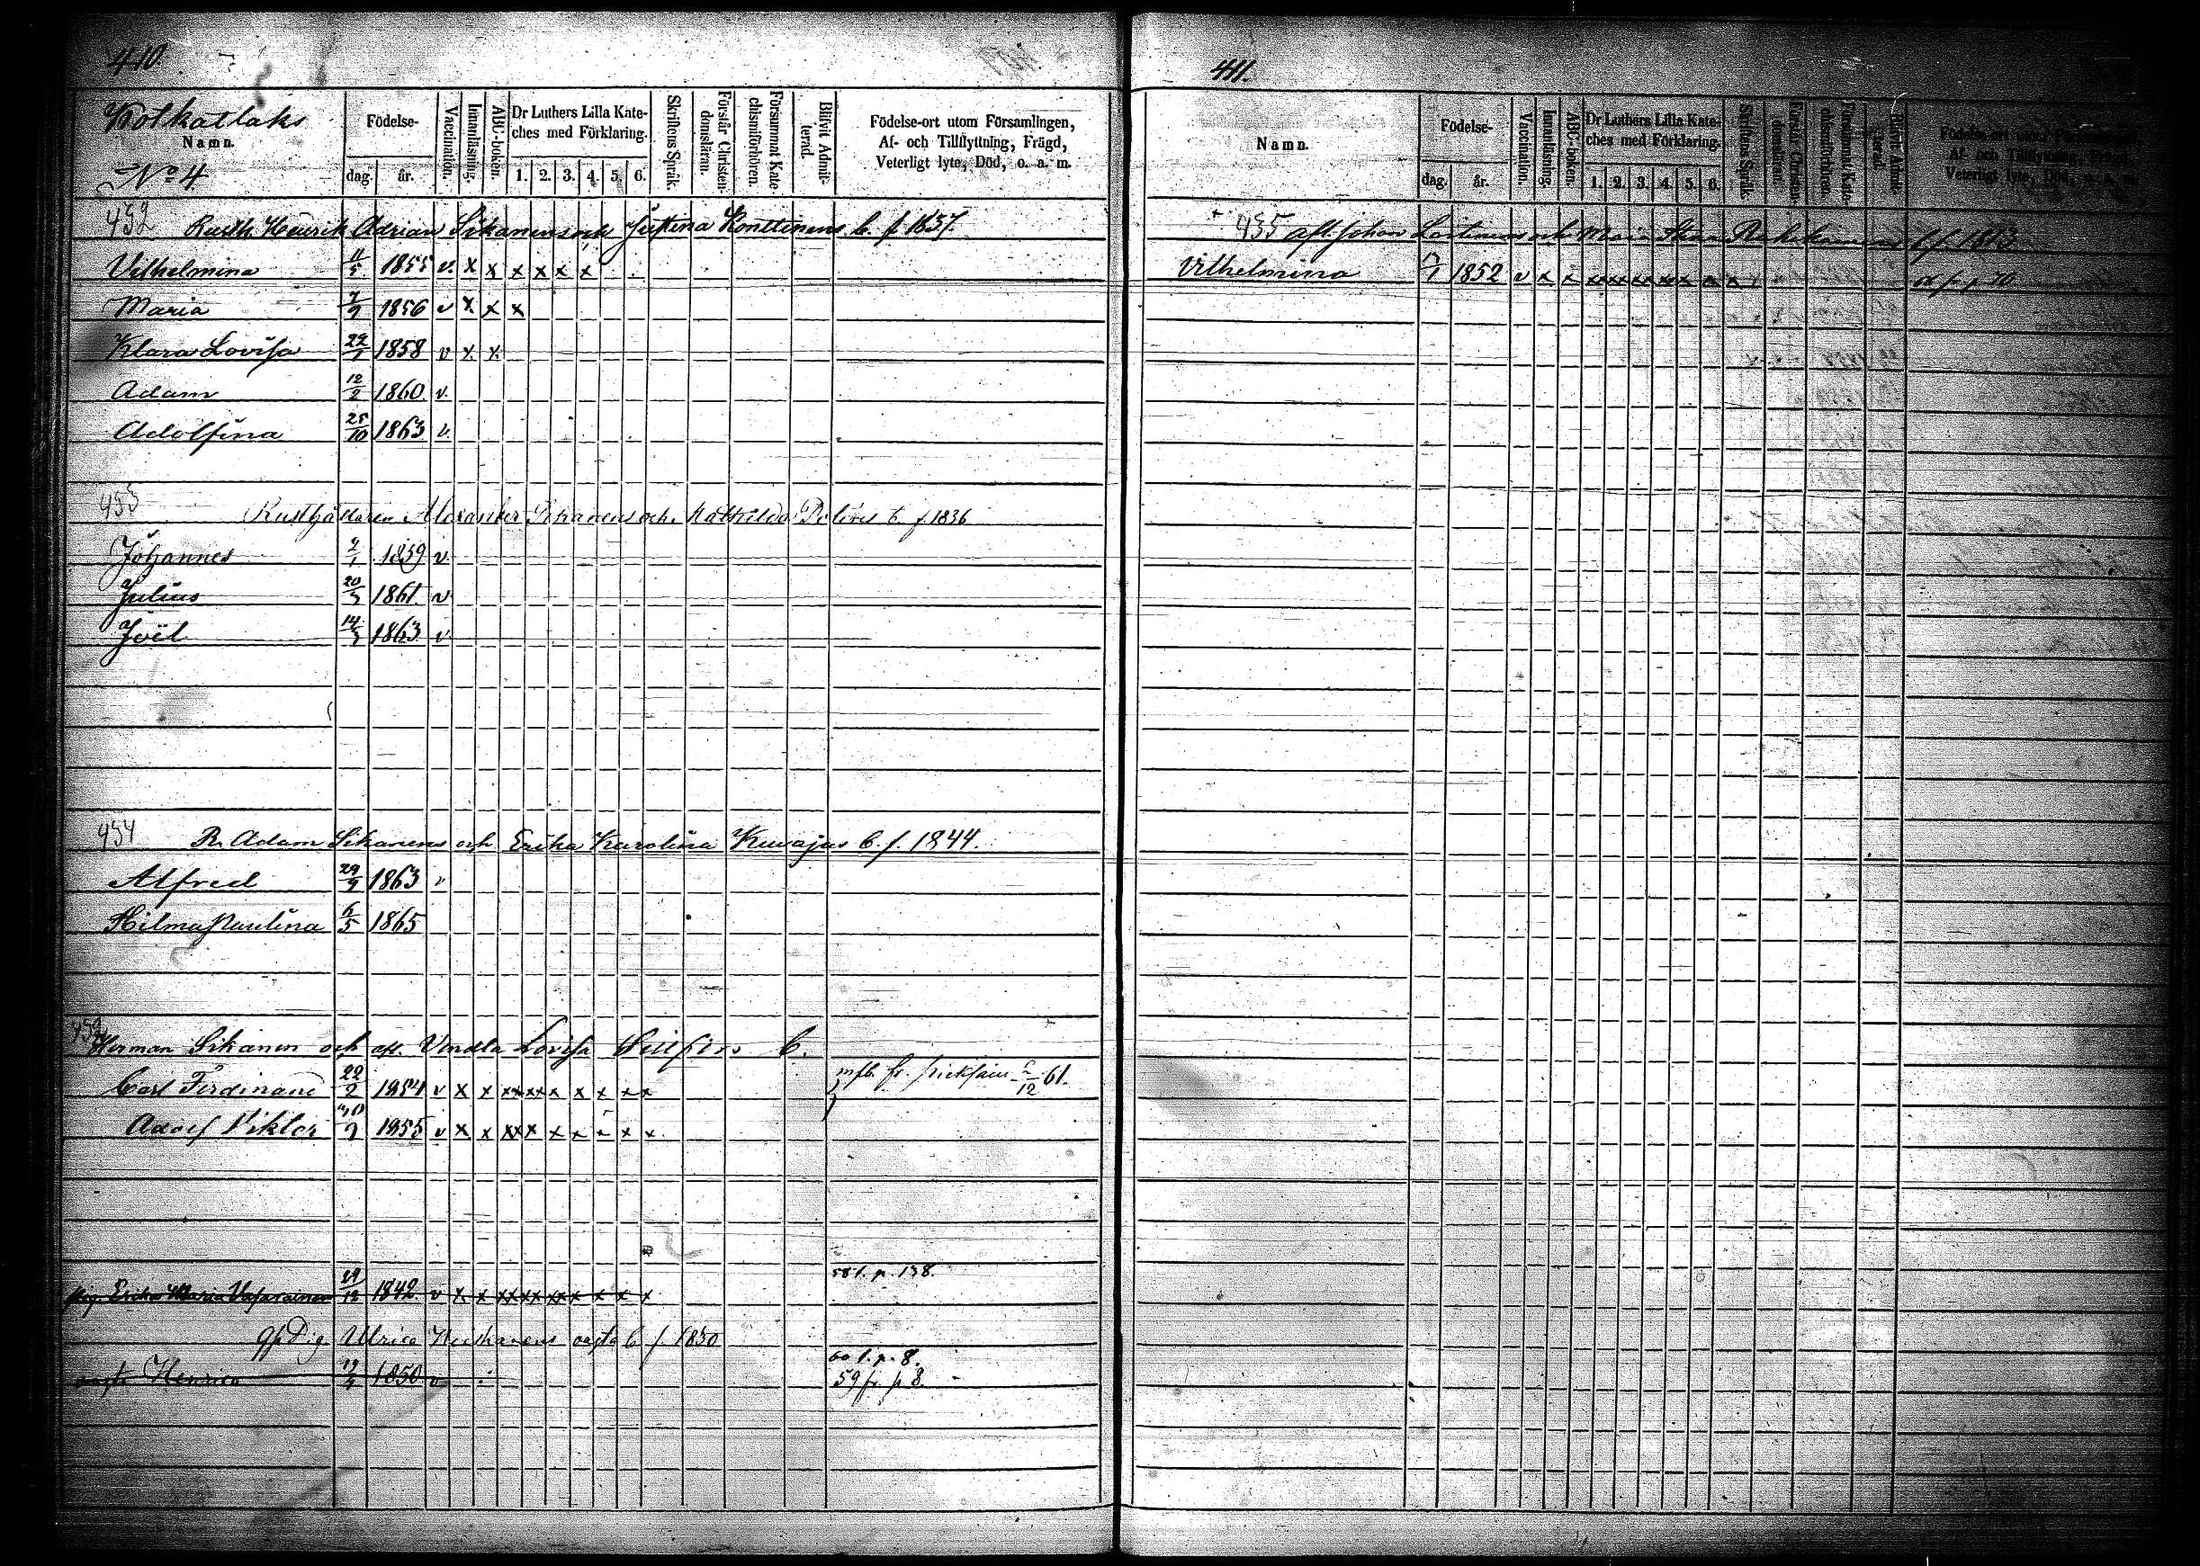 410.
Kotkatlaks
Namn.
No 4
Födelse-
dag. år.
Vaccination.
Innanläsning.
ABC-boken.
Dr Luthers Lilla Kate-
ches med Förklaring.
1. 2. 3. 4. 5. 6.
Skriftens Språk.
Förstår Christen-
domsläran.
Försummat Kate-
chismiförhören.
Blifvit Admit-
terad.
Födelse-ort utom Församlingen,
Af- och Tillflyttning, Frägd,
Veterligt lyte, Död, o. a. m.
452 Rusth. Henrik Adrian Sikanens och Justina Konttinens b. f. 1837.
Vilhelmina 11/5 1855 v. x x x x x x
Maria 7/9 1856 v x x x
Klara Lovisa 22/1 1858 v x x
Adam 12/2 1860 v.
Adolfina 25/10 1863 v.
453
Rusthållaren Alexander Sikanens och Mathilda b. f. 1836
Johannes 2/1 1859 v
Julius 20/3 1861 v
Joël 14/3 1863 v
454
R. Adam Sikanens och Erika Karolina Kuvajas b. f. 1844.
Alfred 29/9 1863 v
Hilma Paulina 6/5 1865
Herman Sikanen och afl. Vendla Lovisa b.
Carl Ferdinand 22/2 1854 v x x xx xx x x x x x
mfb. fr. 2/12 61.
Adolf Viktor 30/9 1855 v x x xx x x x - x x
58 t. p. 138.
pig. Erika Maria 29/12 1842 v x x xx xx xx x x x
Ulrica b f. 1830
60 t. p. 8.
Henrica 19/9 1850 v
59 fr. p 8.
411.
Namn.
Födelse-
dag. år.
Vaccination.
Innanläsning.
ABC-boken.
Dr Luthers Lilla Kate-
ches med Förklaring.
1. 2. 3. 4. 5. 6.
Skriftens Språk.
Förstår Christen-
domsläran.
Försummat Kate-
chismiförhören.
Blifvit Admit-
terad.
Födelse-ort utom Församlingen,
Af- och Tillflyttning, Frägd,
Veterligt lyte, Död, o. a. m.
455 afl. Johan och Maria b f. 1813
Vilhelmina 17/1 1852 v x x xx xx xx xx x x x